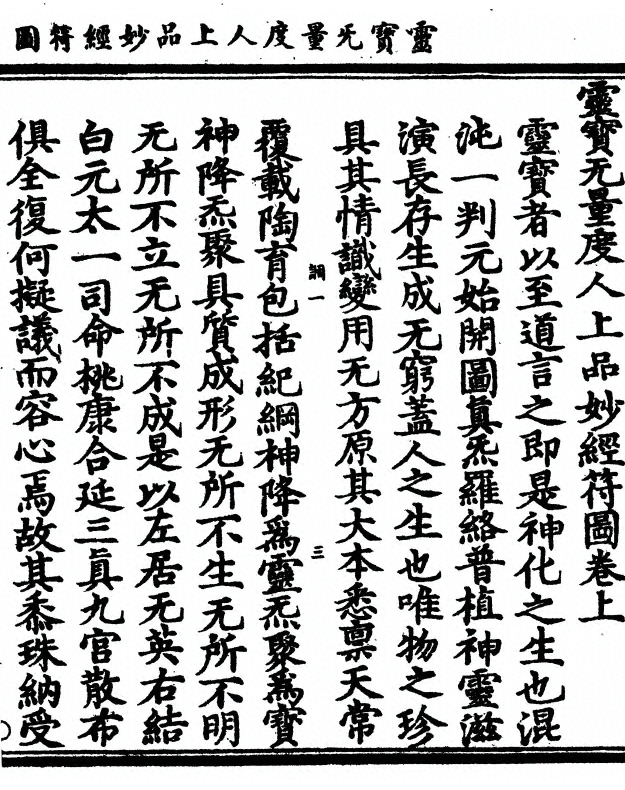 靈寶无量度人上品妙經符圖
靈寶无量度人上品妙經符圖卷上
靈寶者以至道言之即是神化之生也混
沌一判元始開圖真炁羅絡普植神靈滋
演長存生成无窮蓋人之生也唯物之珍
具其情識變用无方原其大本悉禀天常
調一
三
覆載陶育包括紀綱神降爲靈炁聚爲寶
神降炁聚具質成形无所不生无所不明
无所不立无所不成是以左居无英右結
白元太一司命桃康合延三真九宮散布
俱全復何擬議而容心焉故其黍珠納受